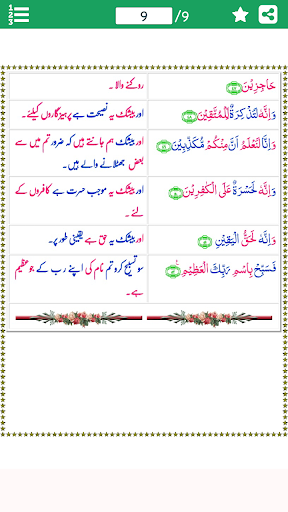 9 /9
حَاجِزِيْنَ
روکنے والا ۔
وَاِنَّهٗ لَتَذْكِرَةٌ لِّلْمُتَّقِيْنَ
اور بیشک یہ نصیحت ہے پرہیزگاروں کیلئے۔
وَاِنَّا لَنَعْلَمُ اَنَّ مِنْكُمْ مُّكَذِّبِيْنَ
اور بیشک ہم جانتے ہیں کہ ضرور تم میں سے
بعض جھٹلانے والے ہیں۔
وَاِنَّهٗ لَحَسْرَةٌ عَلَى الْكٰفِرِيْنَ
اور بیشک یہ موجب حسرت ہے کافروں کے
لئے ۔
وَاِنَّهٗ لَحَقُّ الْيَقِيْنِ
اور بیشک یہ حق ہے یقینی طور پر۔
فَسَبِّحْ بِاسْمِ رَبِّكَ الْعَظِيْمِ
سو تسبیح کرو تم نام کی اپنے رب کے جو عظیم
ہے۔